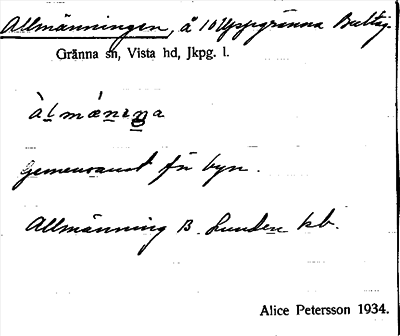 Allmänningen, å 10 Uppgränna Beltg.
Gränna sn, Vista hd, Jkpg. l.
àlmǻnɩŋa
Gemensamt för byn.
Allmänning B. Lunden kb.
Alice Petersson 1934.